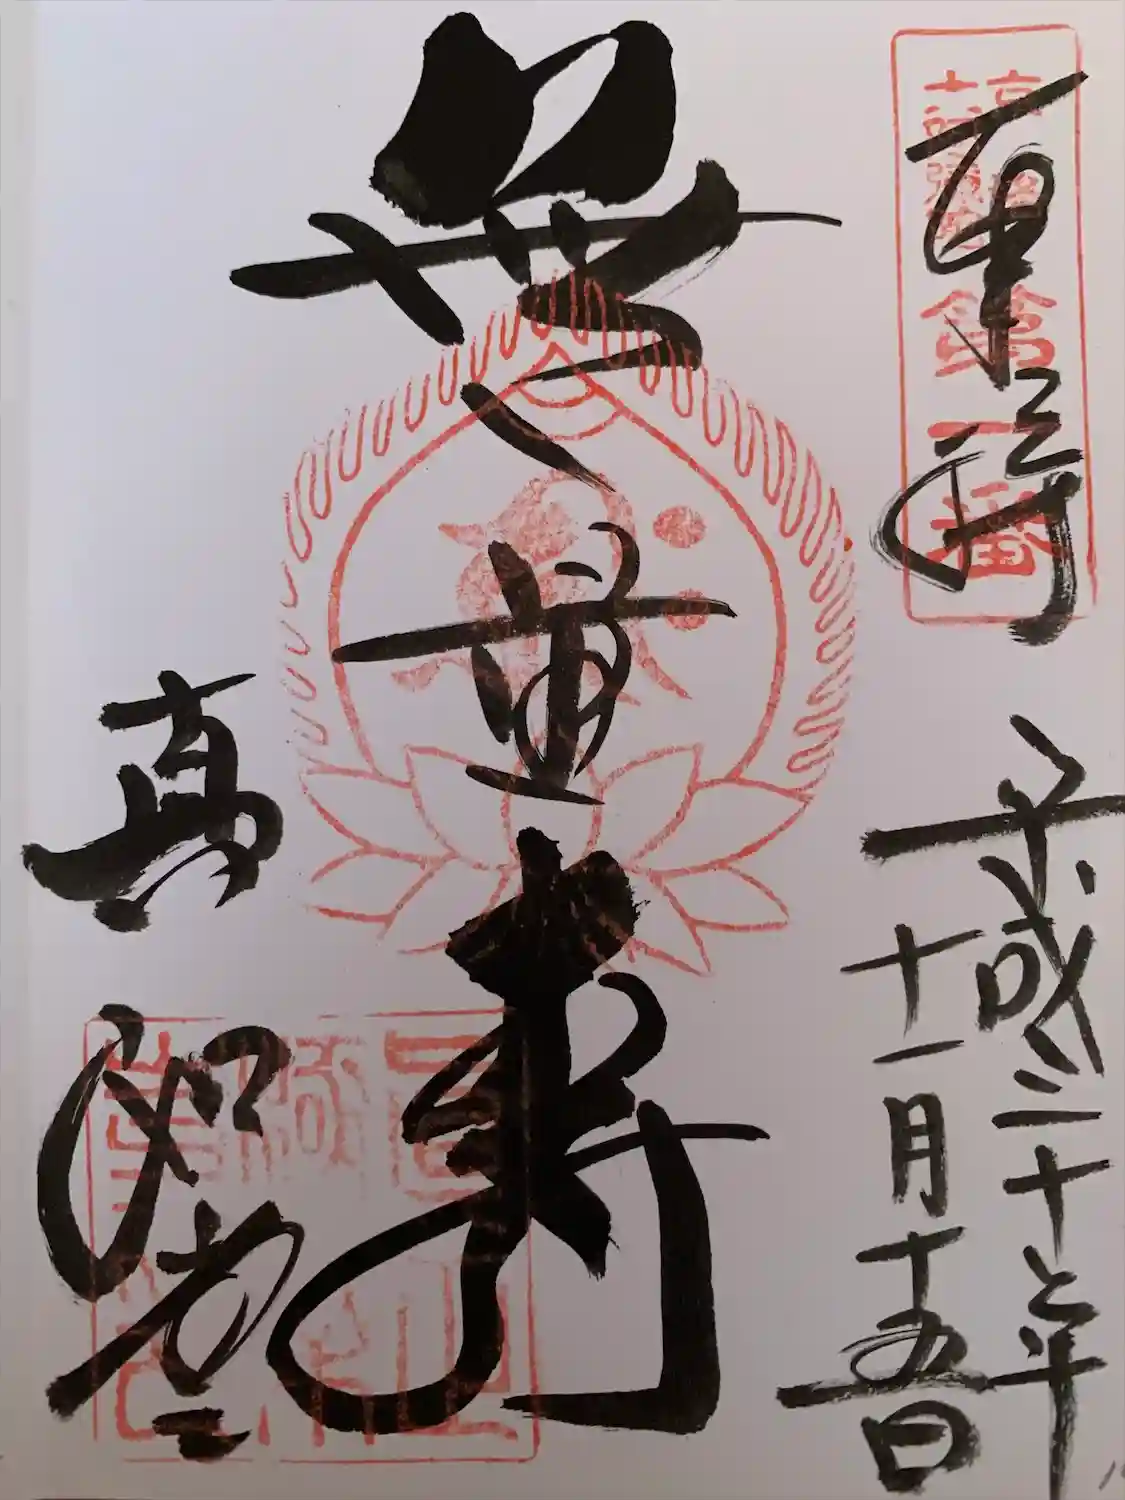 奉拝
第一番
平成二十七年
十一月十五日
無量寿
真如堂